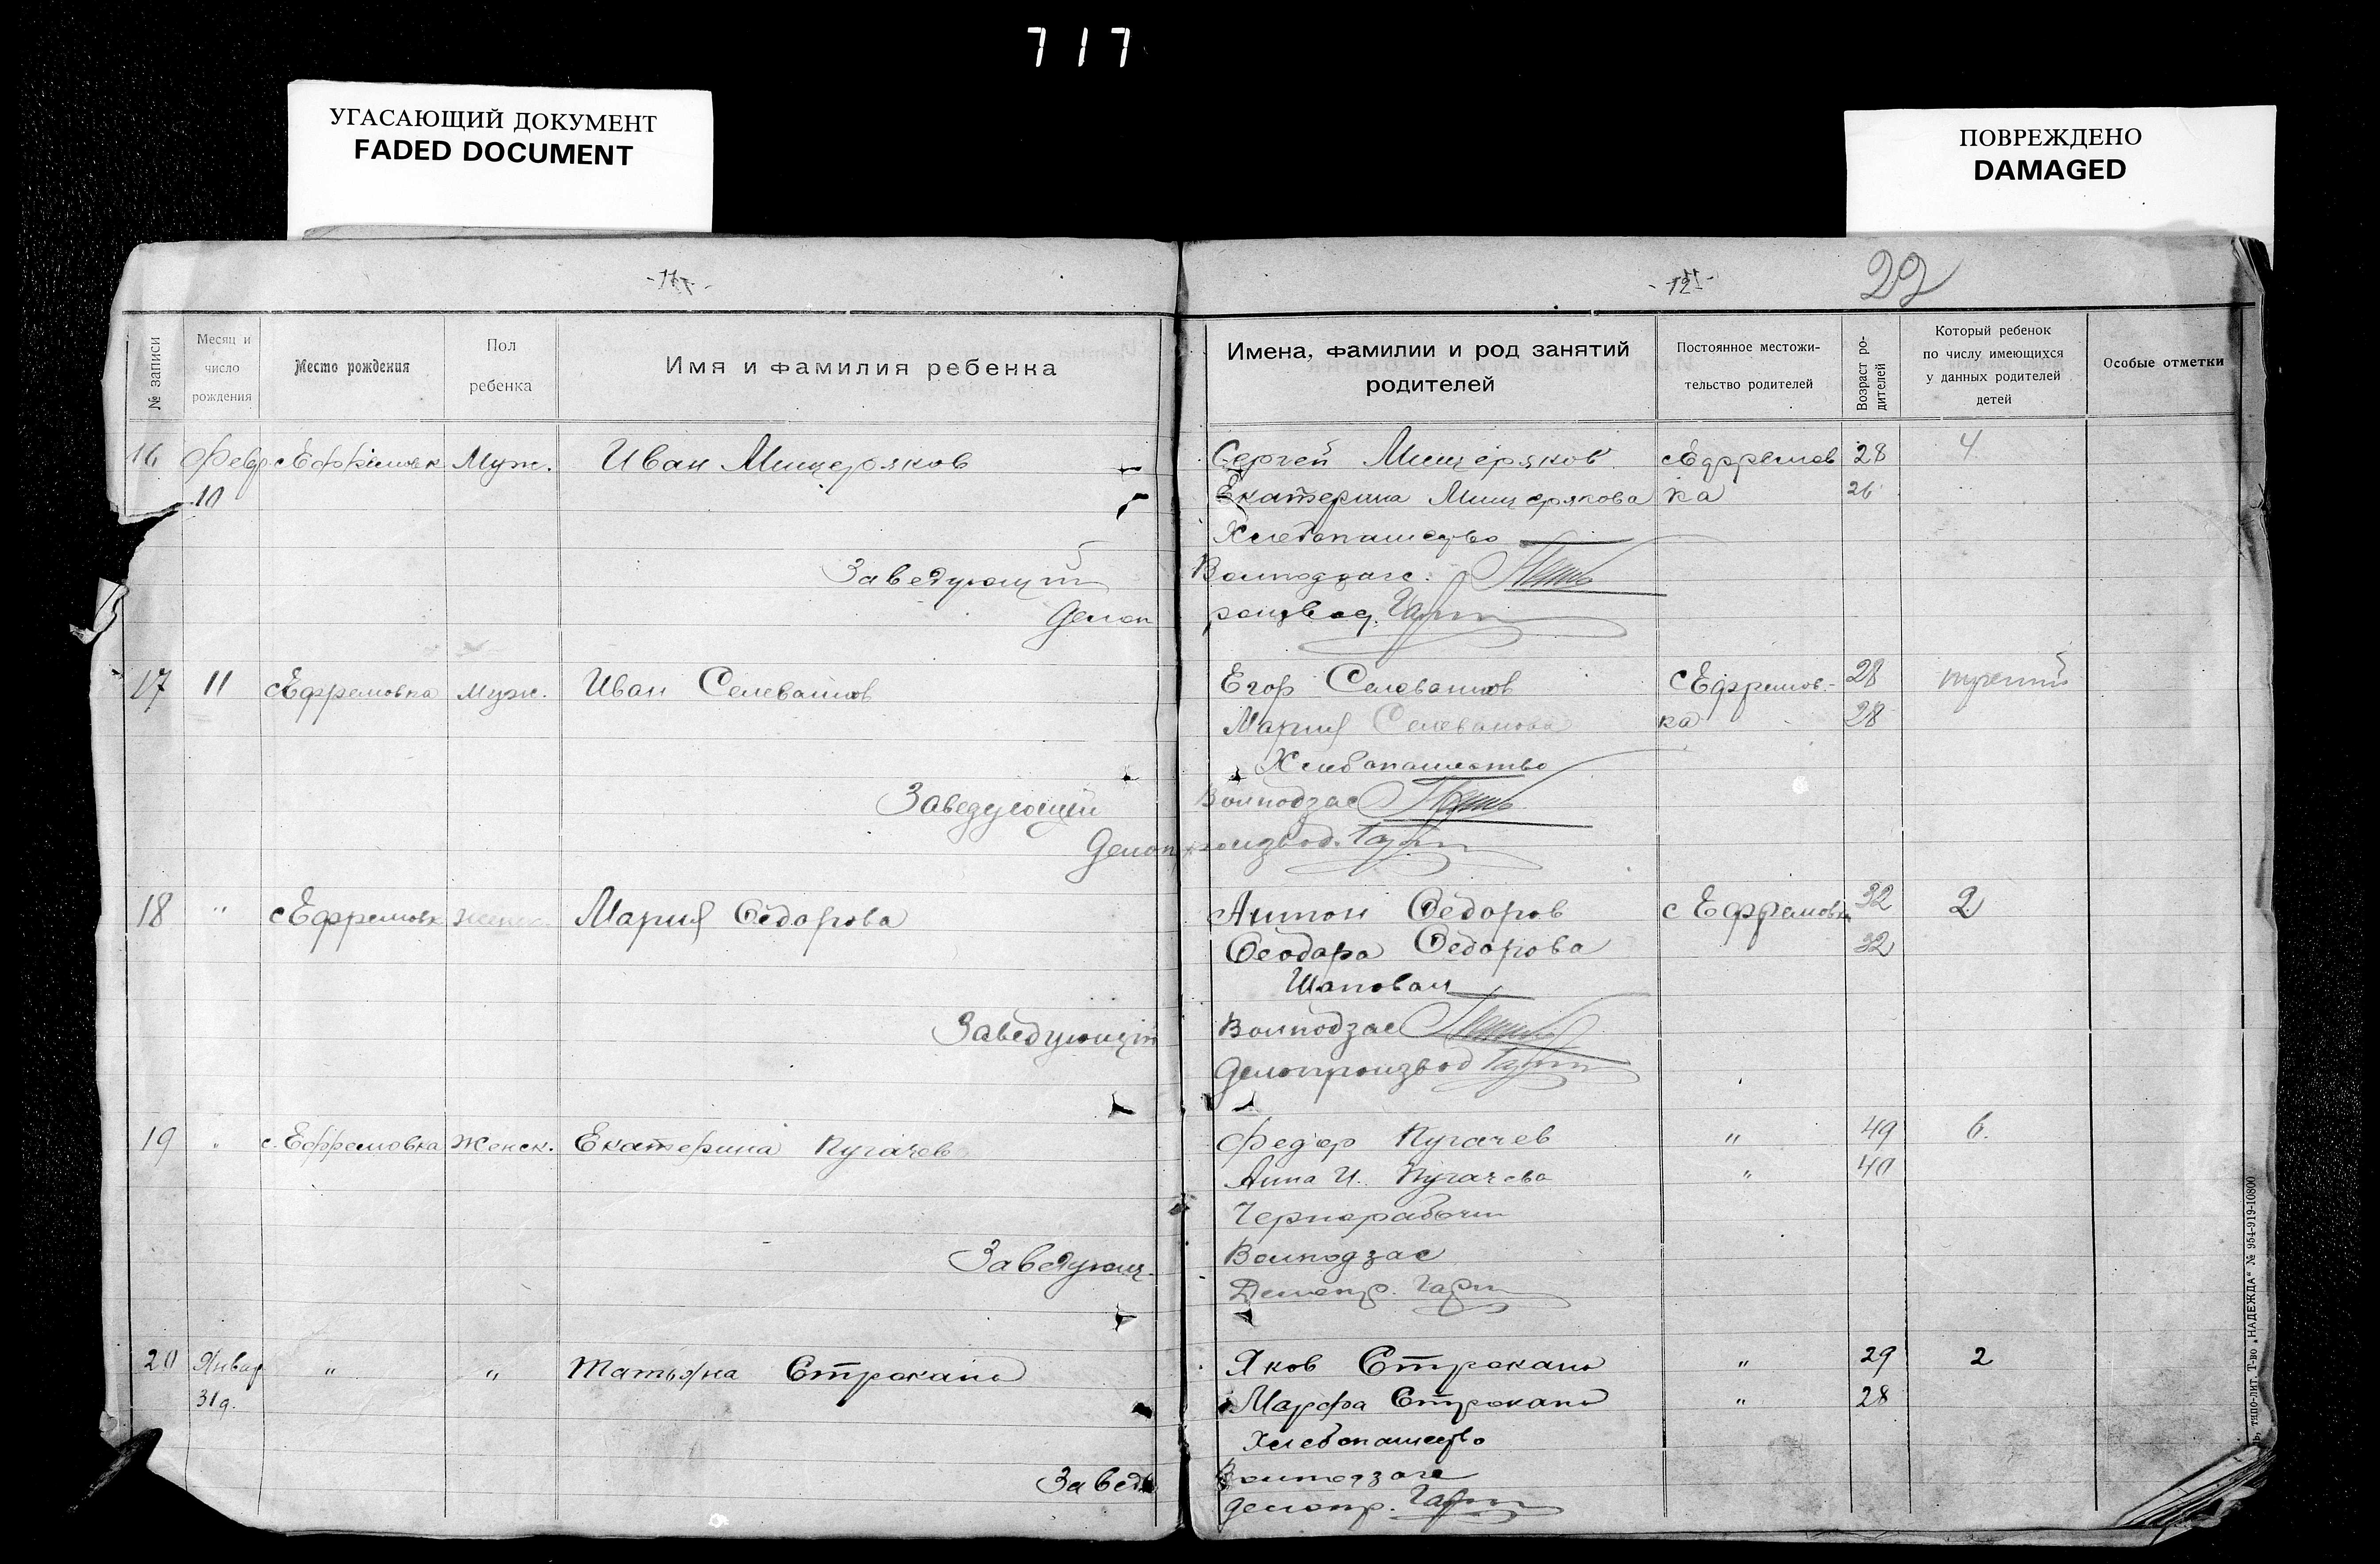 717
УГАСАЮЩИЙ ДОКУМЕНТ
FADED DOCUMENT
ПОВРЕЖДЕНО
DAMAGED
22
№ записи
Месяц и число рождения
Место рождения
Пол ребенка
Имя и фамилия ребенка
Имена, фамилии и род занятий родителей
Постоянное местожи-
тельство родителей
Возраст ро-
дителей
Который ребенок
по числу имеющихся
у данных родителей
детей
Особые отметки
16 Февр. с Ефремовк Муж. Иван Мищеряков Сергей Мищеряков с Ефремов 28 4
10 Екатерина Мищерякова ка 26
Хлебопашество
Заведующий Волподзагс.
Делоп роизвод.
17 11 с Ефремовка муж. Иван Селеванов Егор Селеванов с Ефремов- 28 третий
Мария Селеванова ка 28
Хлебопашество
Заведующий Волподзас
Делопроизвод.
18 " с Ефремовк женск. Мария Федорова Антон Федоров с Ефремовка 32 2
Феодора Федорова 32
Шаповал
Заведующий Волподзас
Делопроизвод
19 " с. Ефремовка Женск. Екатерина Пугачев Федор Пугачев " 49 6.
Анна И. Пугачева " 40
Чернорабочий
Заведующ. Волподзас
Делопр.
20 Январ " " Татьяна Строкань Яков Строкань " 29 2
31 д. Марфа Строкань " 28
Хлебопашество
Завед Волподзаге
делопр.
типо-лит. Т-во „НАДЕЖДА“ № 954-919-10800